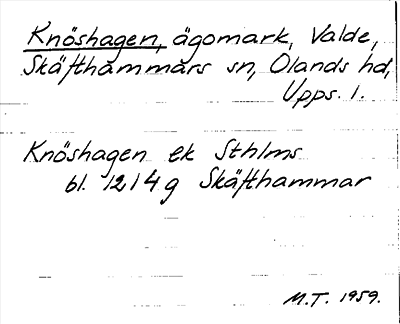 Knöshagen, ägomark, Valde,
Skäfthammars sn, Olands hd,
Upps. l.
Knöshagen ek Sthlms
bl. 1214g Skäfthammar
M.T. 1959.